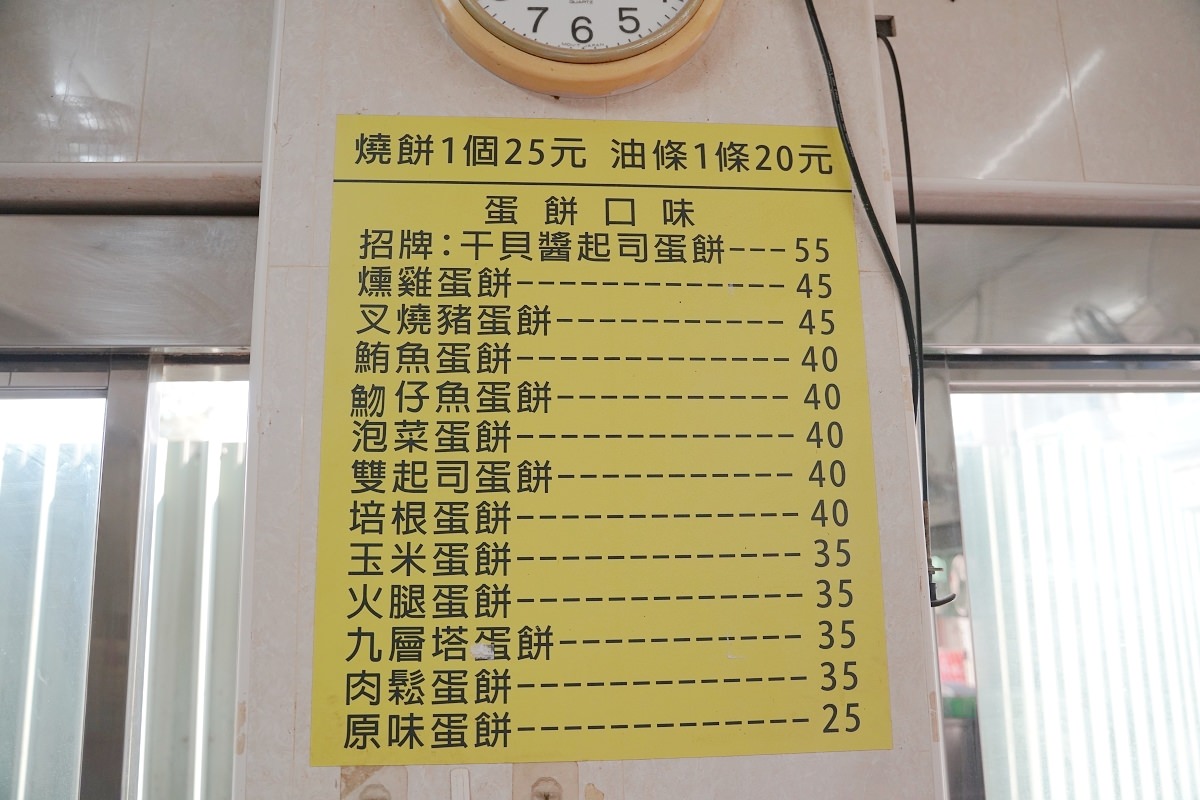 7 6 5
QUARTZ
燒餅1個25元 油條1條20元
蛋餅口味
招牌:干貝醬起司蛋餅---55
燻雞蛋餅-------------45
叉燒豬蛋餅-----------45
鮪魚蛋餅-------------40
魩仔魚蛋餅-----------40
泡菜蛋餅-------------40
雙起司蛋餅-----------40
培根蛋餅-------------40
玉米蛋餅-------------35
火腿蛋餅-------------35
九層塔蛋餅-----------35
肉鬆蛋餅-------------35
原味蛋餅-------------25